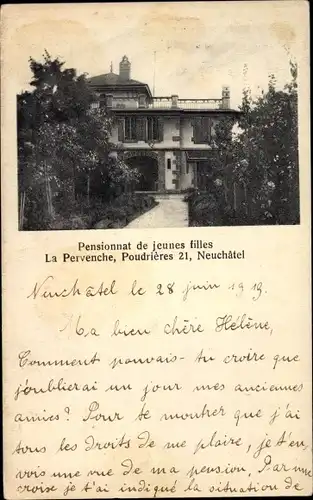 Pensionnat de jeunes filles
La Pervenche, Poudrières 21, Neuchâtel
Neuchâtel le 28 juin 1919.
Ma bien chère Hélène,
Comment pouvais-tu croire que
j'oublierai un jour mes anciennes
amies? Pour te montrer que j'ai
tous les droits de me plaire, je t'en,
vois une vue de ma pension, Par une
croise je t'ai indiqué la situation de